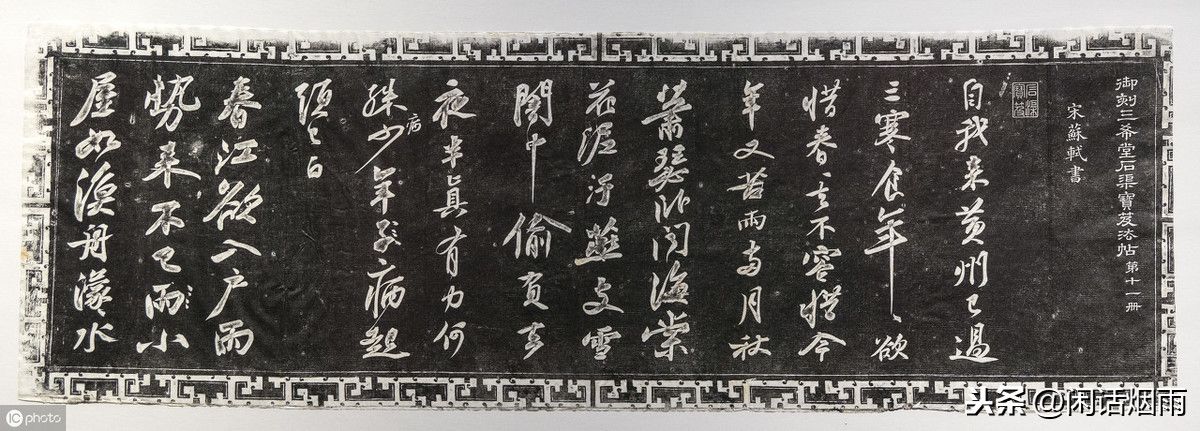 御刻三希堂石渠寶笈法帖 第十一冊
宋蘇軾書
石渠寶笈
自我来黄州已過
三寒食年〻欲
惜春〻去不容惜今
年又苦雨兩月秋
蕭瑟卧聞海棠
花泥汙燕支雪
闇中偷負去
夜半真有力何
殊病少年子病起
頭已白
春江欲入户雨
勢来不已雨小
屋如漁舟濛〻水
iC photo
头条 @闲话烟雨